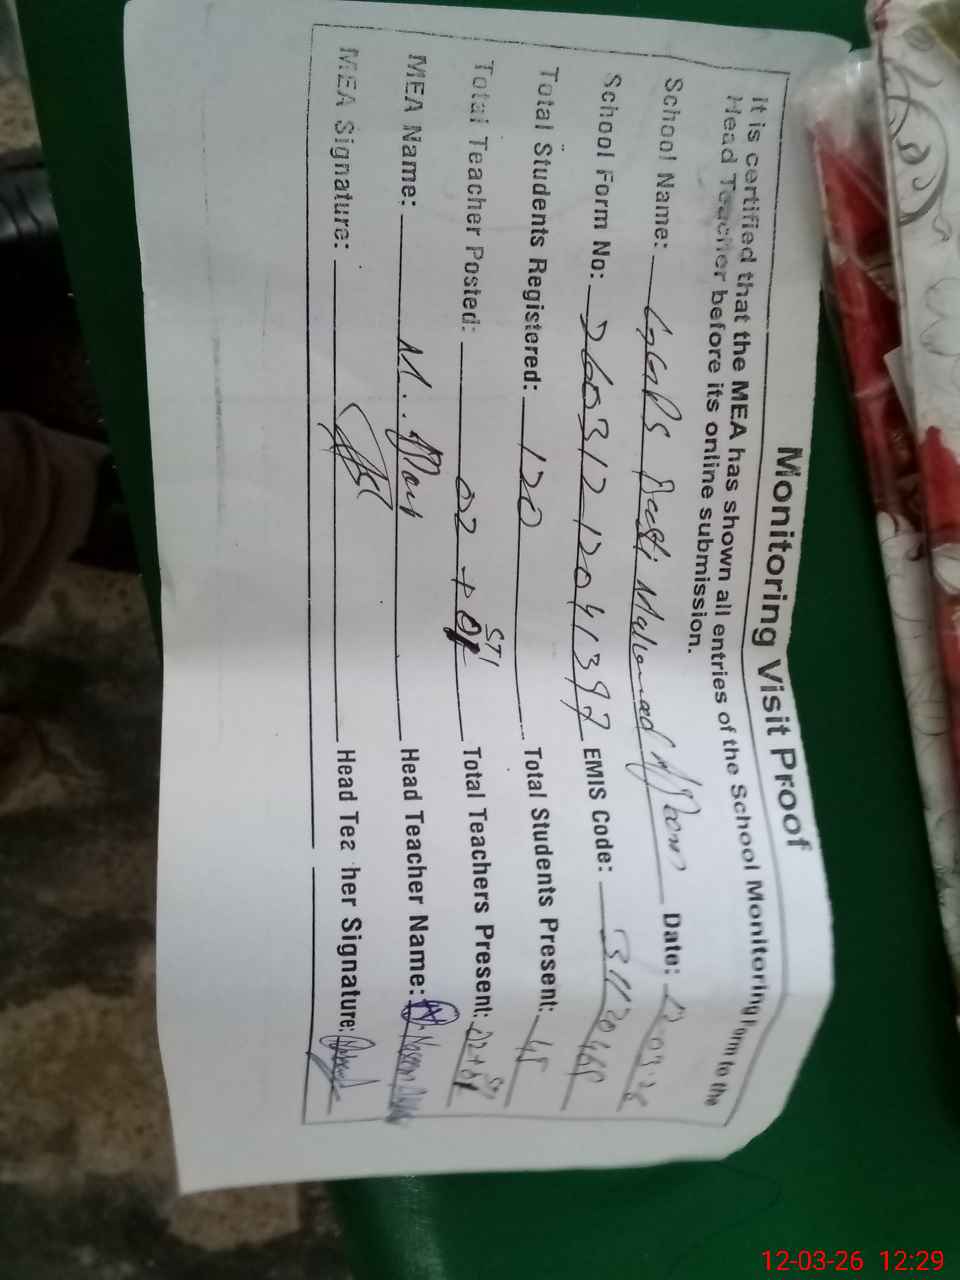 Monitoring Visit Proof
It is certified that the MEA has shown all entries of the School Monitoring form to the
Head Teacher before its online submission.
School Name: GGPS Dost Muhammad Date: 12.03.26
School Form No: D6031212041397 EMIS Code:
Total Students Registered: 120 Total Students Present: 45
Total Teacher Posted: 02 + 01 STI Total Teachers Present: 02+01 STI
MEA Name: M. Head Teacher Name:
MEA Signature: Head Teacher Signature:
12-03-26 12:29